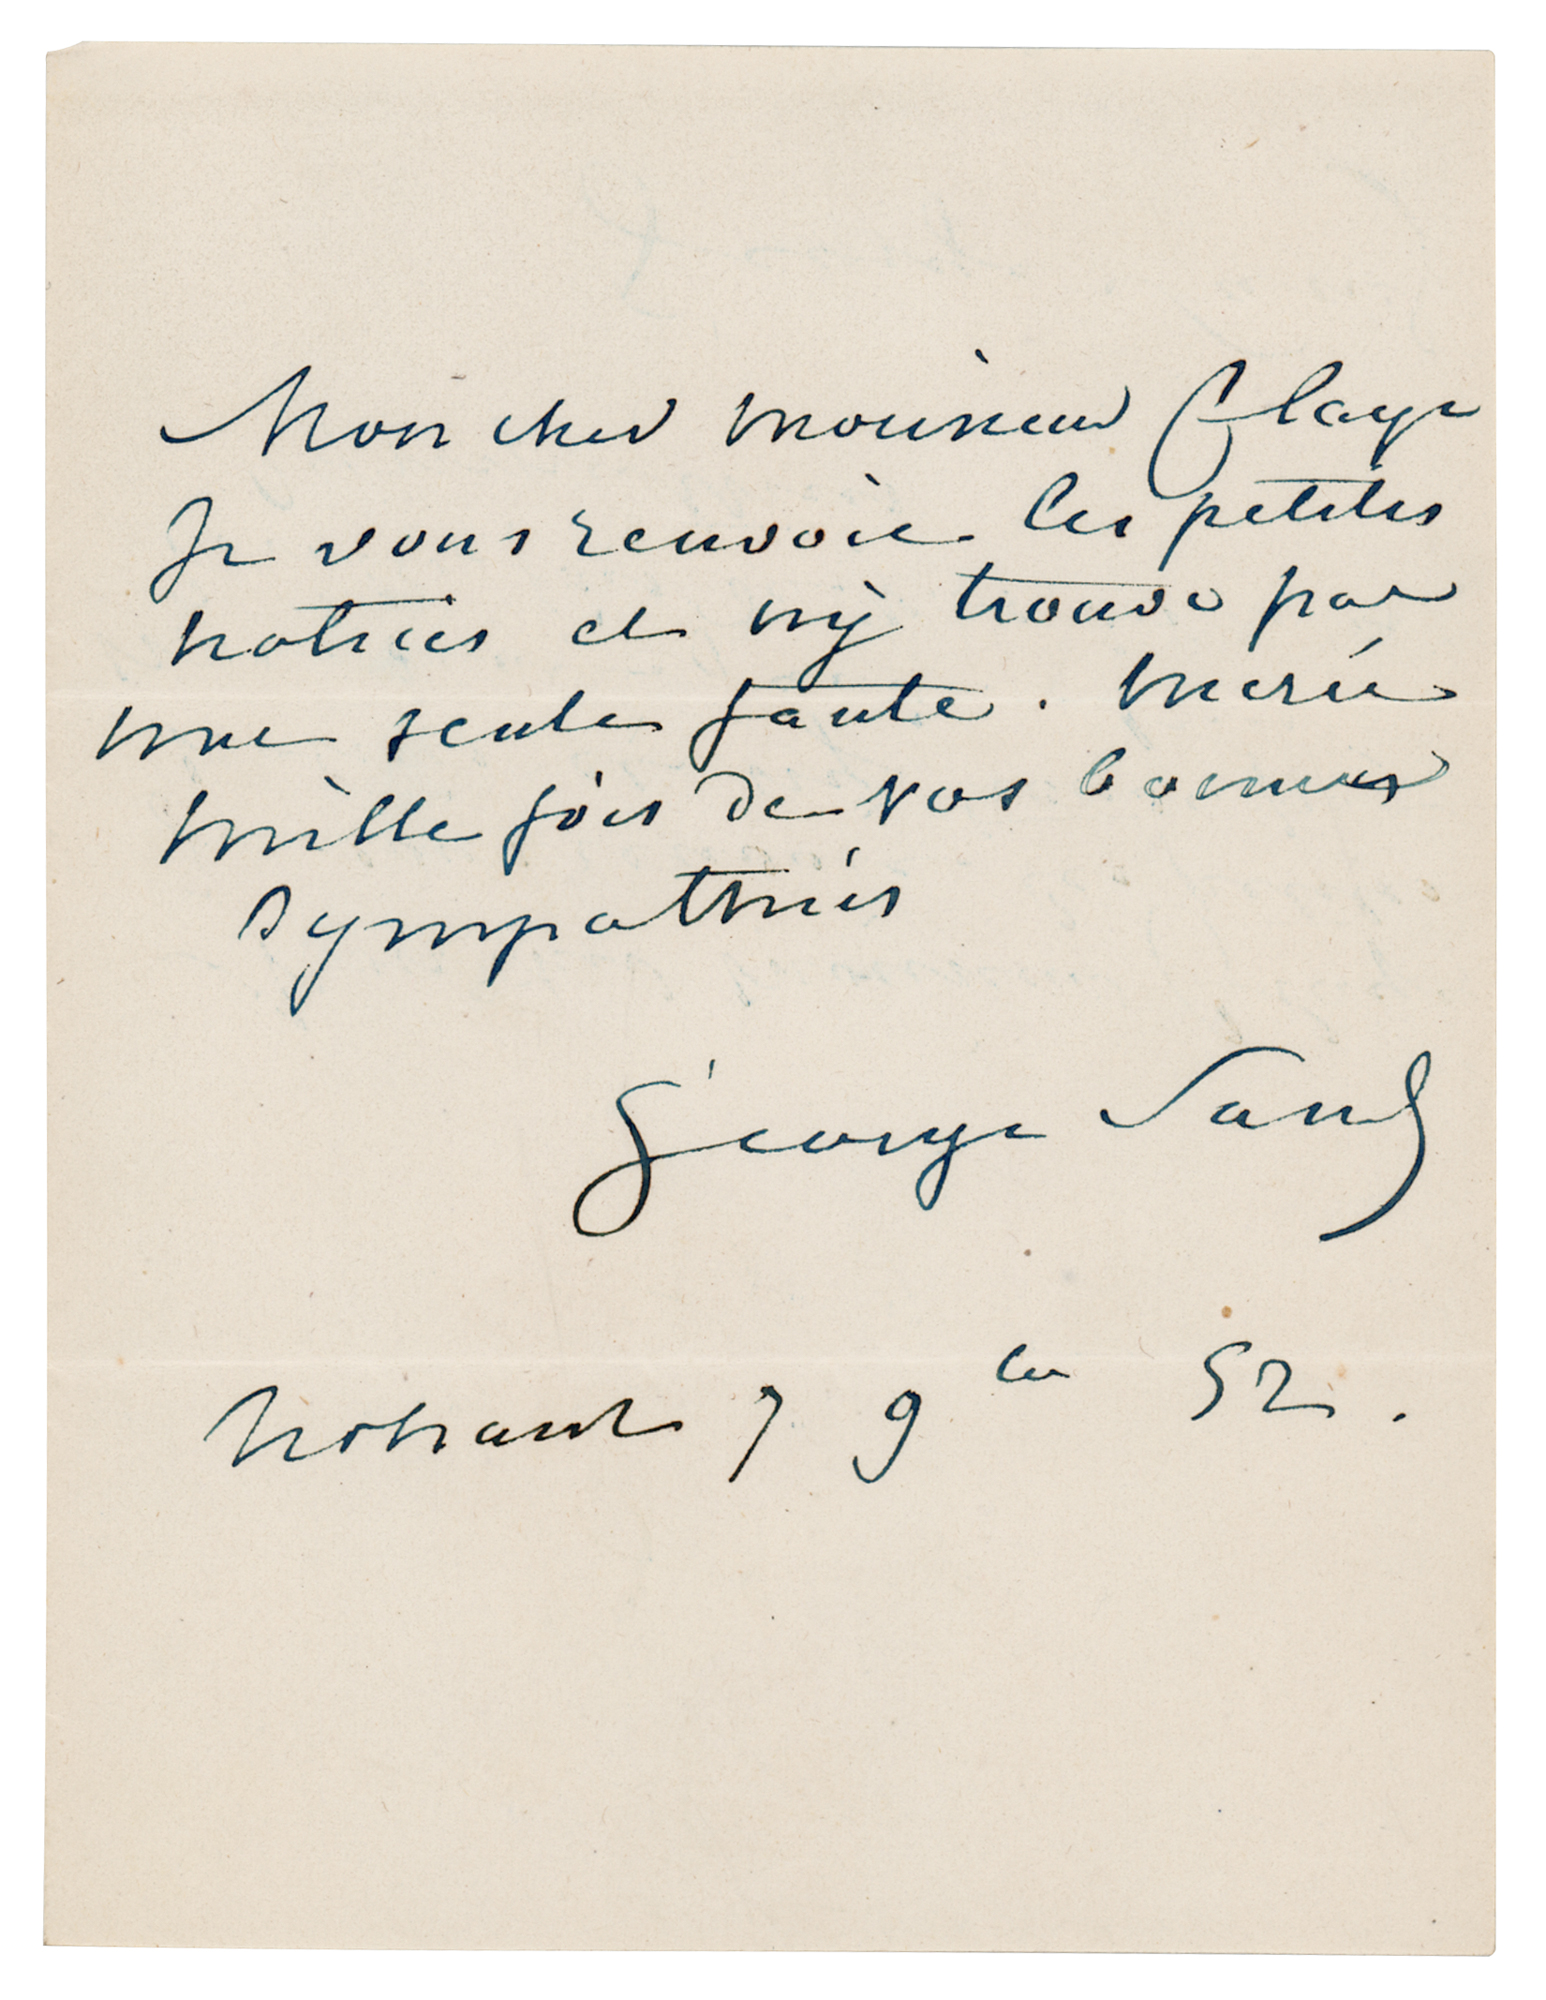 Mon cher monsieur Claye
Je vous renvoie les petites
notices et n'y trouve pas
une seule faute. Merci
mille fois de vos bonnes
sympathies
George Sand
Nohant 7 9bre 52.